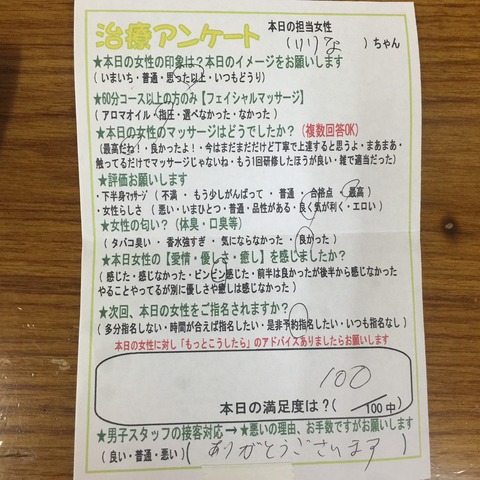 治療アンケート
本日の担当女性
( りりな )ちゃん
★本日の女性の印象は?本日のイメージをお願いします
( いまいち・普通・思った以上・いつもどうり )
★60分コース以上の方のみ【フェイシャルマッサージ】
( アロマオイル・指圧・選べなかった・なかった )
★本日の女性のマッサージはどうでしたか?(複数回答OK)
(最高だね!・良かったよ!・今はまだまだだけど丁寧で上達すると思うよ・まあまあ・
触ってるだけでマッサージじゃないね・もう1回研修したほうが良い・雑で適当だった)
★評価お願いします
・下半身マッサージ ( 不満 ・ もう少しがんばって ・ 普通 ・ 合格点 ・ 最高 )
・女性らしさ ( 悪い・いまひとつ・普通・品性がある・良く気が利く・エロい )
★女性の匂い?(体臭・口臭等)
( タバコ臭い ・ 香水強すぎ ・ 気にならなかった ・ 良かった )
★本日女性の【愛情・優しさ・癒し】を感じましたか?
( 感じた・感じなかった・ビンビン感じた・前半は良かったが後半から感じなかった
やることやってるが別に優しさや癒しは感じなかった )
★次回、本日の女性をご指名されますか?
( 多分指名しない・時間が合えば指名したい・是非予約指名したい・いつも指名なし )
本日の女性に対し「もっとこうしたら」のアドバイスありましたらお願いします
100
本日の満足度は?( /100中 )
★男子スタッフの接客対応→★悪いの理由、お手数ですがお願いします
( 良い・普通・悪い )( ありがとうございます )